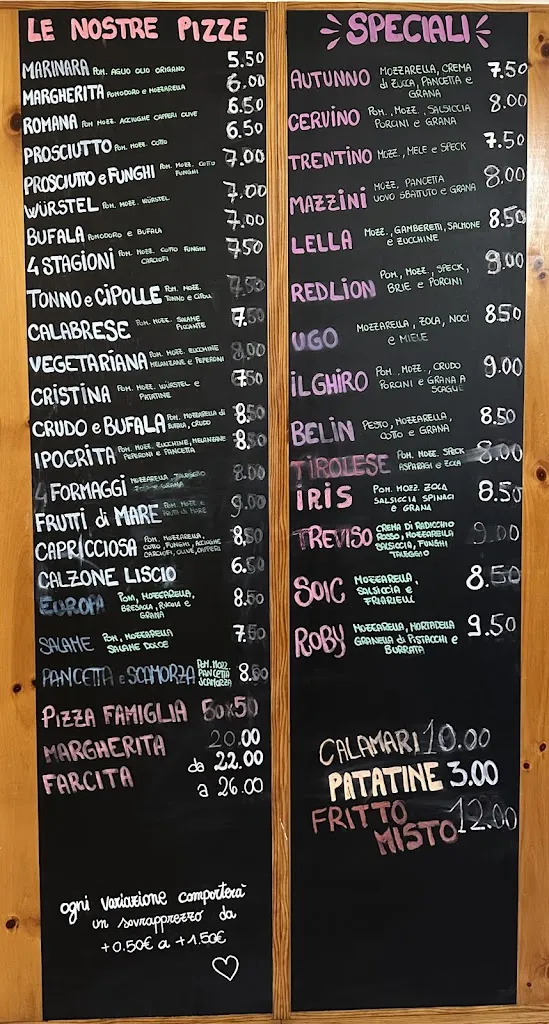 LE NOSTRE PIZZE
MARINARA POM. AGLIO OLIO ORIGANO 5.50
MARGHERITA POMODORO e MOZZARELLA 6.00
ROMANA POM. MOZZ. ACCIUGHE CAPPERI OLIVE 6.50
PROSCIUTTO POM. MOZZ. COTTO 6.50
PROSCIUTTO e FUNGHI POM. MOZZ. COTTO 7.00
FUNGHI
WÜRSTEL POM. MOZZ. WÜRSTEL 7.00
BUFALA POMODORO e BUFALA 7.00
4 STAGIONI POM. MOZZ. COTTO FUNGHI 7.50
CARCIOFI
TONNO e CIPOLLE POM. MOZZ. 7.50
TONNO e CIPOLL
CALABRESE POM. MOZZ. SALAME 7.50
PICCANTE
VEGETARIANA POM. MOZZ. ZUCCHINE 8.00
MELANZANE e PEPERONI
CRISTINA POM. MOZZ. WÜRSTEL e 7.50
PATATINE
CRUDO e BUFALA POM. MOZZARELLA di 8.50
BUFALA, CRUDO
IPOCRITA POM. MOZZ. ZUCCHINE, MELANZANE 8.50
PEPERONI e PANCETTA
4 FORMAGGI MOZZARELLA TALEGGIO 8.00
GRANA
FRUTTI di MARE POM. MOZZ. e 9.00
FRUTTI di MARE
CAPRICCIOSA POM. MOZZARELLA, 8.50
COTTO, FUNGHI, ACCIUGHE
CARCIOFI, OLIVE, CAPPERI
CALZONE LISCIO 6.50
EUROPA POM, MOZZARELLA, 8.50
BRESAOLA, RUCOLA e
GRANA
SALAME POM, MOZZARELLA 7.50
SALAME DOLCE
PANCETTA e SCAMORZA POM. MOZZ. 8.50
PANCETTA
SCAMORZA
PIZZA FAMIGLIA 50x50
MARGHERITA 20.00
FARCITA da 22.00
a 26.00
ogni variazione comporterà
un sovrapprezzo da
+0.50€ a +1.50€
SPECIALI
AUTUNNO MOZZARELLA, CREMA 7.50
di ZUCCA, PANCETTA e
GRANA
CERVINO POM., MOZZ., SALSICCIA 8.00
PORCINI e GRANA
TRENTINO MOZZ., MELE e SPECK 7.50
MAZZINI MOZZ, PANCETTA 8.00
UOVO SBATTUTO e GRANA
LELLA MOZZ., GAMBERETTI, SALMONE 8.50
e ZUCCHINE
REDLION POM., MOZZ., SPECK, 9.00
BRIE e PORCINI
UGO MOZZARELLA, ZOLA, NOCI 8.50
e MIELE
iL GHIRO POM., MOZZ., CRUDO 9.00
PORCINI e GRANA A
SCAGLIE
BELIN PESTO, MOZZARELLA, 8.50
COTTO e GRANA
TIROLESE POM. MOZZ. SPECK 8.00
ASPARAGI e ZOLA
IRIS POM. MOZZ. ZOLA 8.50
SALSICCIA SPINACI
e GRANA
TREVISO CREMA di RADICCHIO 9.00
ROSSO, MOZZARELLA
SALSICCIA, FUNGHI
TALEGGIO
SOIC MOZZARELLA, 8.50
SALSICCIA e
FRIARIELLI
ROBY MOZZARELLA, MORTADELLA 9.50
GRANELLA di PISTACCHI e
BURRATA
CALAMARI 10.00
PATATINE 3.00
FRITTO
MISTO 12.00